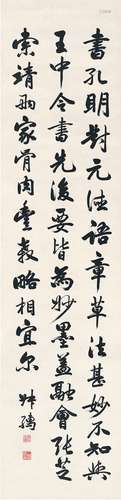 書孔明對元德語章草法甚妙不知與
王中令書先後要皆為妙墨蓋融會張芝
索靖兩家骨肉臺教略相宜尔